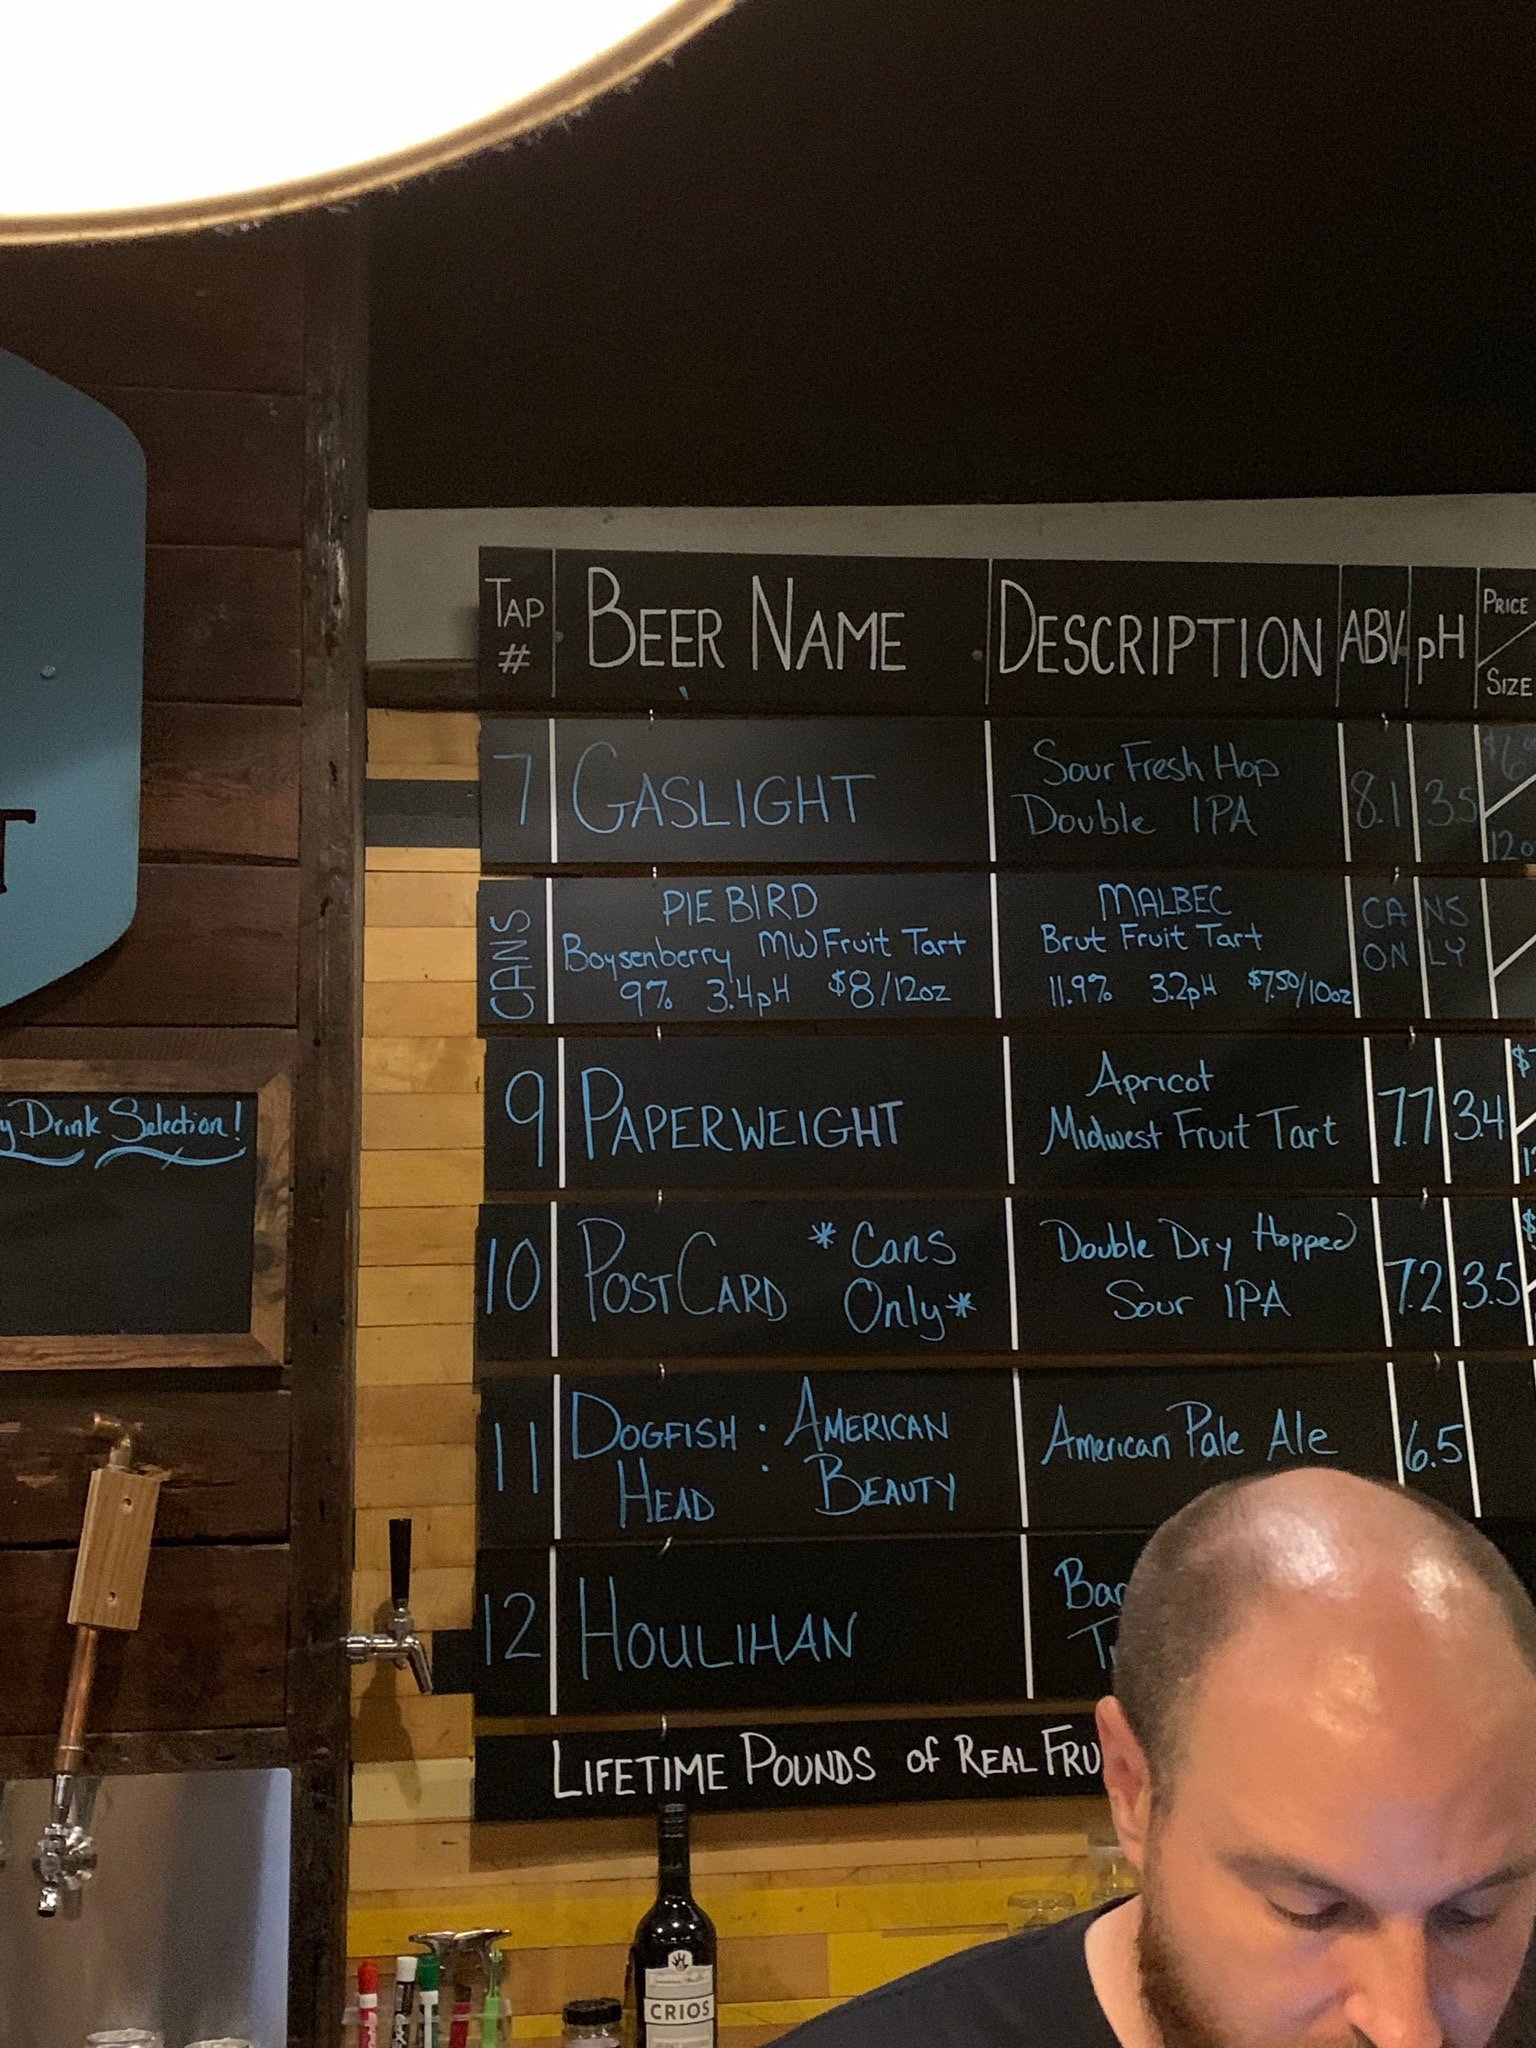 TAP #
BEER NAME
DESCRIPTION
ABV
pH
PRICE
SIZE
7
GASLIGHT
Sour Fresh Hop
Double IPA
8.1
3.5
CANS
PIE BIRD
Boysenberry MW Fruit Tart
9% 3.4pH $8/12oz
MALBEC
Brut Fruit Tart
11.9% 3.2pH $7.50/10oz
CANS
ONLY
9
PAPERWEIGHT
Apricot
Midwest Fruit Tart
7.7
3.4
10
POSTCARD
*Cans
Only*
Double Dry Hopped
Sour IPA
7.2
3.5
11
DOGFISH : AMERICAN
HEAD BEAUTY
American Pale Ale
6.5
12
HOULIHAN
LIFETIME POUNDS of REAL FRU
Drink Selection!
CRIOS